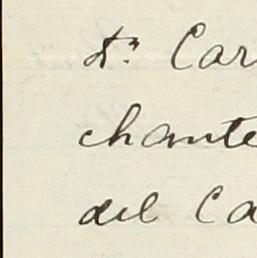 Dn. Car
chante
del Ca